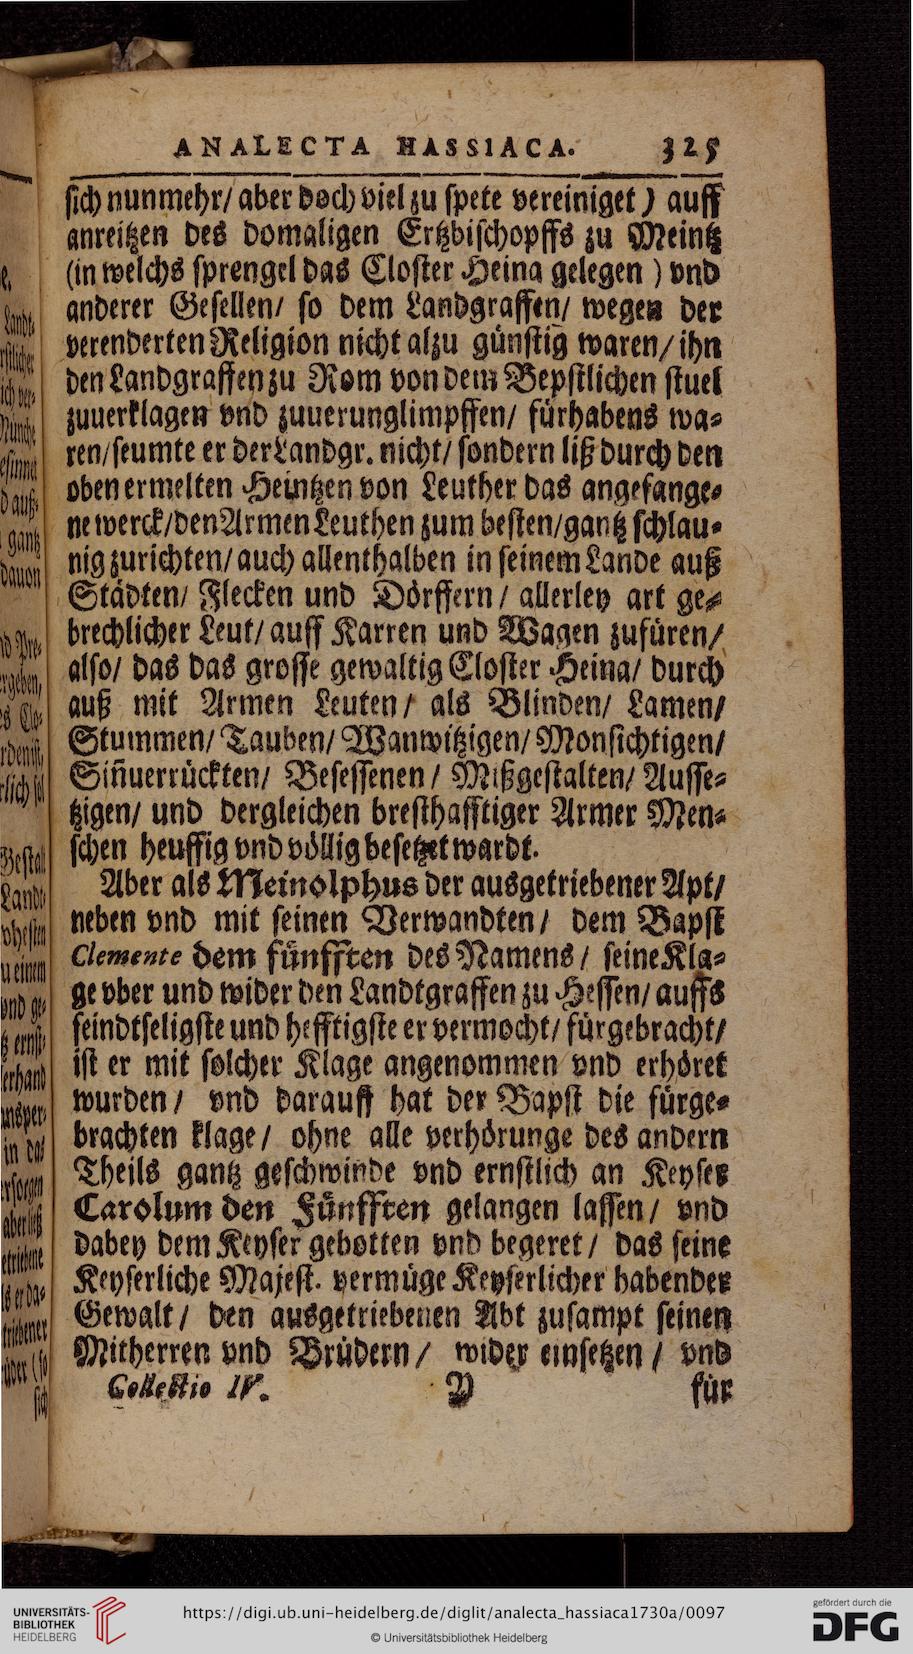 ANALECTA HASSIACA. 325
sich nunmehr/ aber doch viel zu spete vereiniget) auff
anreitzen des domaligen Ertzbischopffs zu Meintz
(in welchs sprengel das Closter Heina gelegen) vnd
anderer Gesellen/ so dem Landgraffen/ wegen der
verenderten Religion nicht alzu günstig waren/ ihn
den Landgraffen zu Rom von dem Bepstlichen stuel
zuuerklagen vnd zuuerunglimpffen/ fürhabens wa-
ren/ seumte er der Landgr. nicht/ sondern liß durch den
oben ermelten Heintzen von Leuther das angefange-
ne werck/ den Armen Leuthen zum besten/ gantz schlau-
nig zurichten/ auch allenthalben in seinem Lande auß
Städten/ Flecken und Dörffern/ allerley art ge-
brechlicher Leut/ auff Karren und Wagen zufüren/
also/ das das grosse gewaltig Closter Heina/ durch
auß mit Armen Leuten/ als Blinden/ Lamen/
Stummen/ Tauben/ Wanwitzigen/ Monsichtigen/
Sin̄uerrückten/ Besessenen/ Mißgestalten/ Ausse-
tzigen/ und dergleichen bresthafftiger Armer Men-
schen heuffig vnd völlig besetzet wardt.
Aber als Meinolphus der ausgetriebener Apt/
neben vnd mit seinen Verwandten/ dem Bapst
Clemente dem fünfften des Namens/ seine Kla-
ge vber und wider den Landtgraffen zu Hessen/ auffs
feindtseligste und hefftigste er vermocht/ fürgebracht/
ist er mit solcher Klage angenommen vnd erhöret
wurden/ vnd darauff hat der Bapst die fürge-
brachten klage/ ohne alle verhörunge des andern
Theils gantz geschwinde vnd ernstlich an Keyser
Carolum den Fünfften gelangen lassen/ vnd
dabey dem Keyser gebotten vnd begeret/ das seine
Keyserliche Majest. vermüge Keyserlicher habender
Gewalt/ den ausgetriebenen Abt zusampt seinen
Mitherren vnd Brüdern/ wider einsetzen/ vnd
Collectio IV. Y für
UNIVERSITÄTS-
BIBLIOTHEK
HEIDELBERG
https://digi.ub.uni-heidelberg.de/diglit/analecta_hassiaca1730a/0097
© Universitätsbibliothek Heidelberg
gefördert durch die
DFG